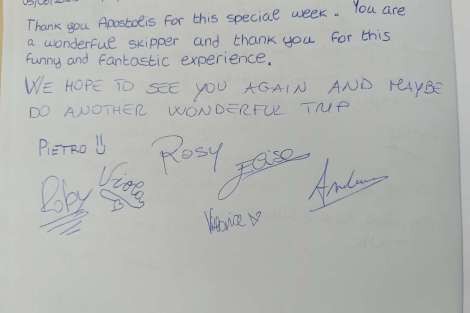 Thank you Apostolis for this special week. You are
a wonderful skipper and thank you for this
funny and fantastic experience.
WE HOPE TO SEE YOU AGAIN AND MAYBE
DO ANOTHER WONDERFUL TRIP
PIETRO
Rosy
Roby
Viola